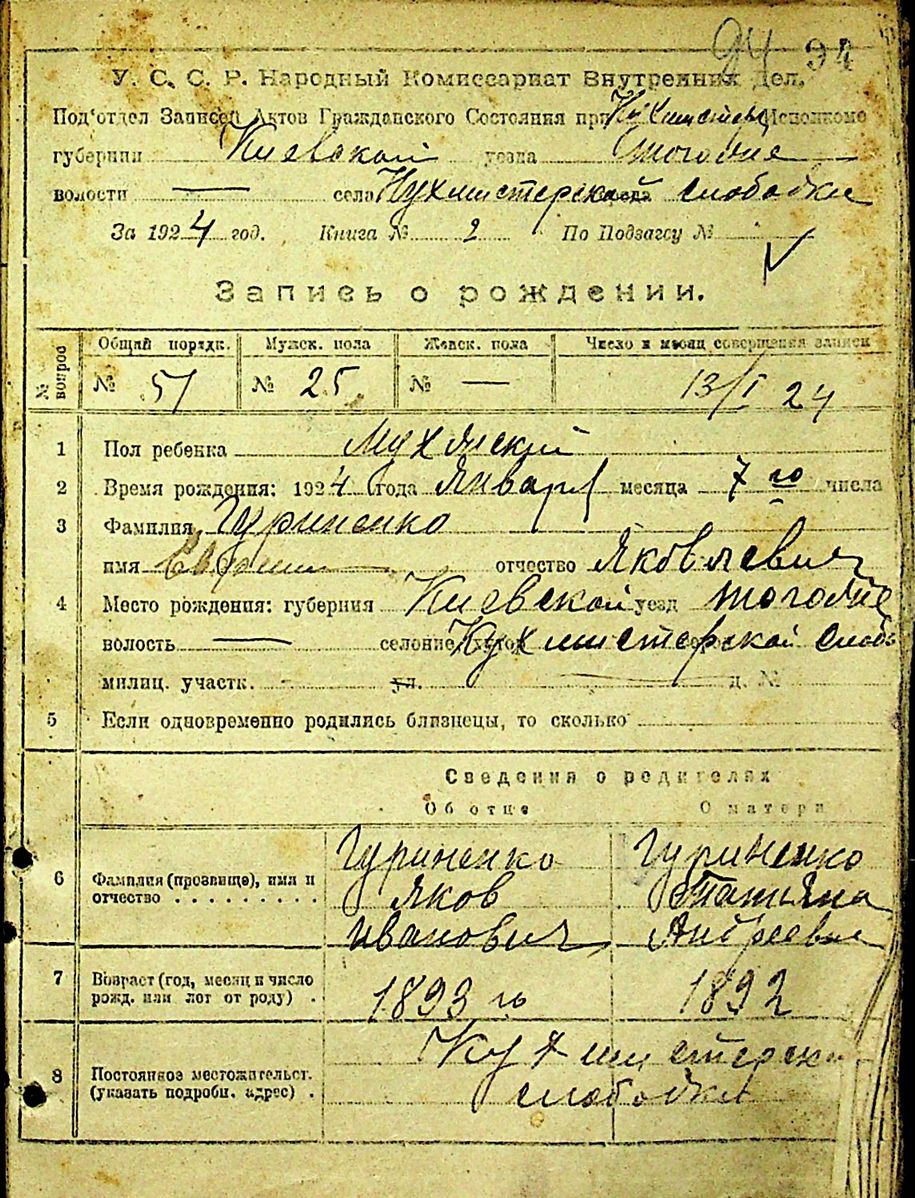 94 94
У. С. С. Р. Народный Комиссариат Внутренних Дел.
Под'отдел Записей Актов Гражданского Состояния при Исполкоме
губернии Киевской уезда тогоже
волости — села Кухмистерской слободки
За 1924 год. Книга № 2 По Подзагсу №
Запись о рождении.
№ вопрос Общий порядк. Мужск. пола Женск. пола Число и месяц совершения записи
№ 51 № 25 № — 13/I 24
1 Пол ребенка Мужской
2 Время рождения: 1924 года Января месяца 7 го числа
3 Фамилия Гуриненко
имя отчество Яковлевич
4 Место рождения: губерния Киевской уезд тогоже
волость — селение Кухмистерской слобо
милиц. участк. ул. д. №
5 Если одновременно родились близнецы, то сколько
Сведения о родителях
Об отце О матери
Гуриненко Гуриненко
6 Фамилия (прозвище), имя и Яков Татьяна
отчество Иванович Андреевна
7 Возраст (год, месяц и число
рожд. или лет от роду) 1893 го 1892
Кухмистерска
8 Постоянное местожительст.
(указать подробн. адрес) слободка